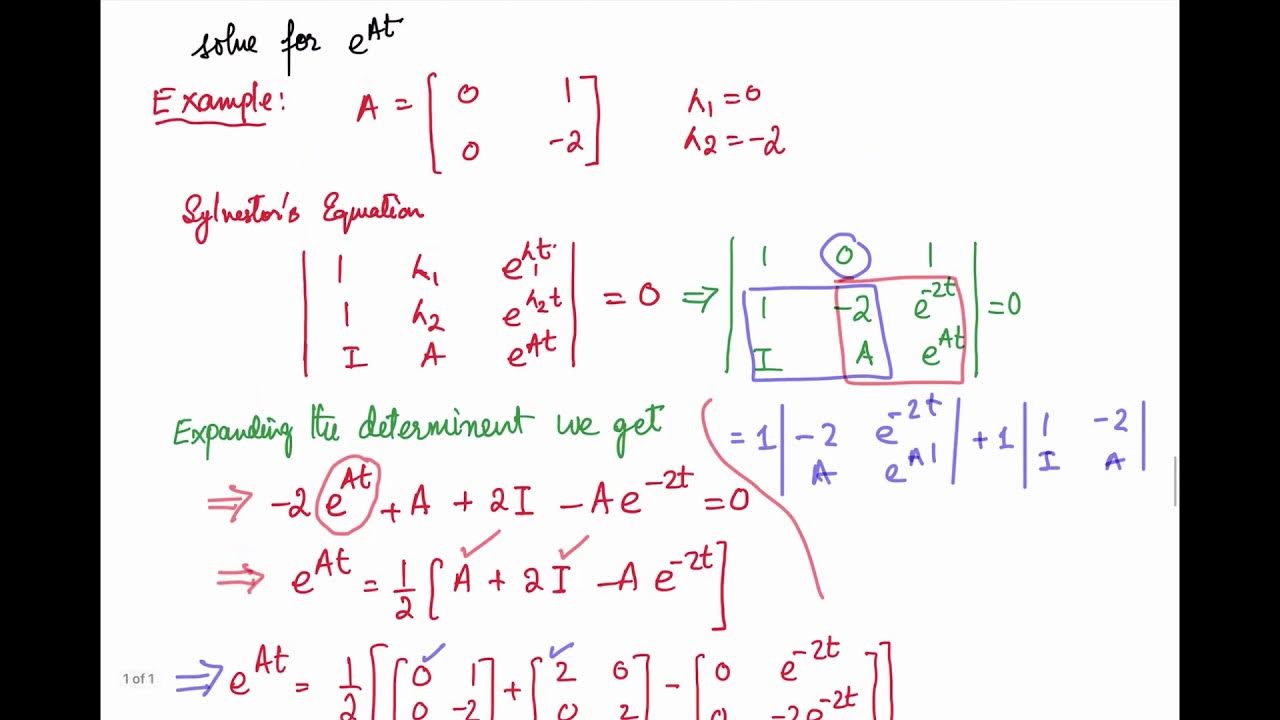 solve for e^{At}
Example: A = [0 1; 0 -2] λ₁ = 0
λ₂ = -2
Sylvestor's Equation
|1 λ₁ e^{λ₁t}; 1 λ₂ e^{λ₂t}; I A e^{At}| = 0 ⇒ |1 0 1; 1 -2 e^{-2t}; I A e^{At}| = 0
Expanding the determinent we get
= 1 |-2 e^{-2t}; A e^{At}| + 1 |1 -2; I A|
⇒ -2 e^{At} + A + 2I - A e^{-2t} = 0
⇒ e^{At} = 1/2 [A + 2I - A e^{-2t}]
⇒ e^{At} = 1/2 [[0 1; 0 -2] + [2 0; 0 2] - [0 e^{-2t}; 0 -2e^{-2t}]]
1 of 1